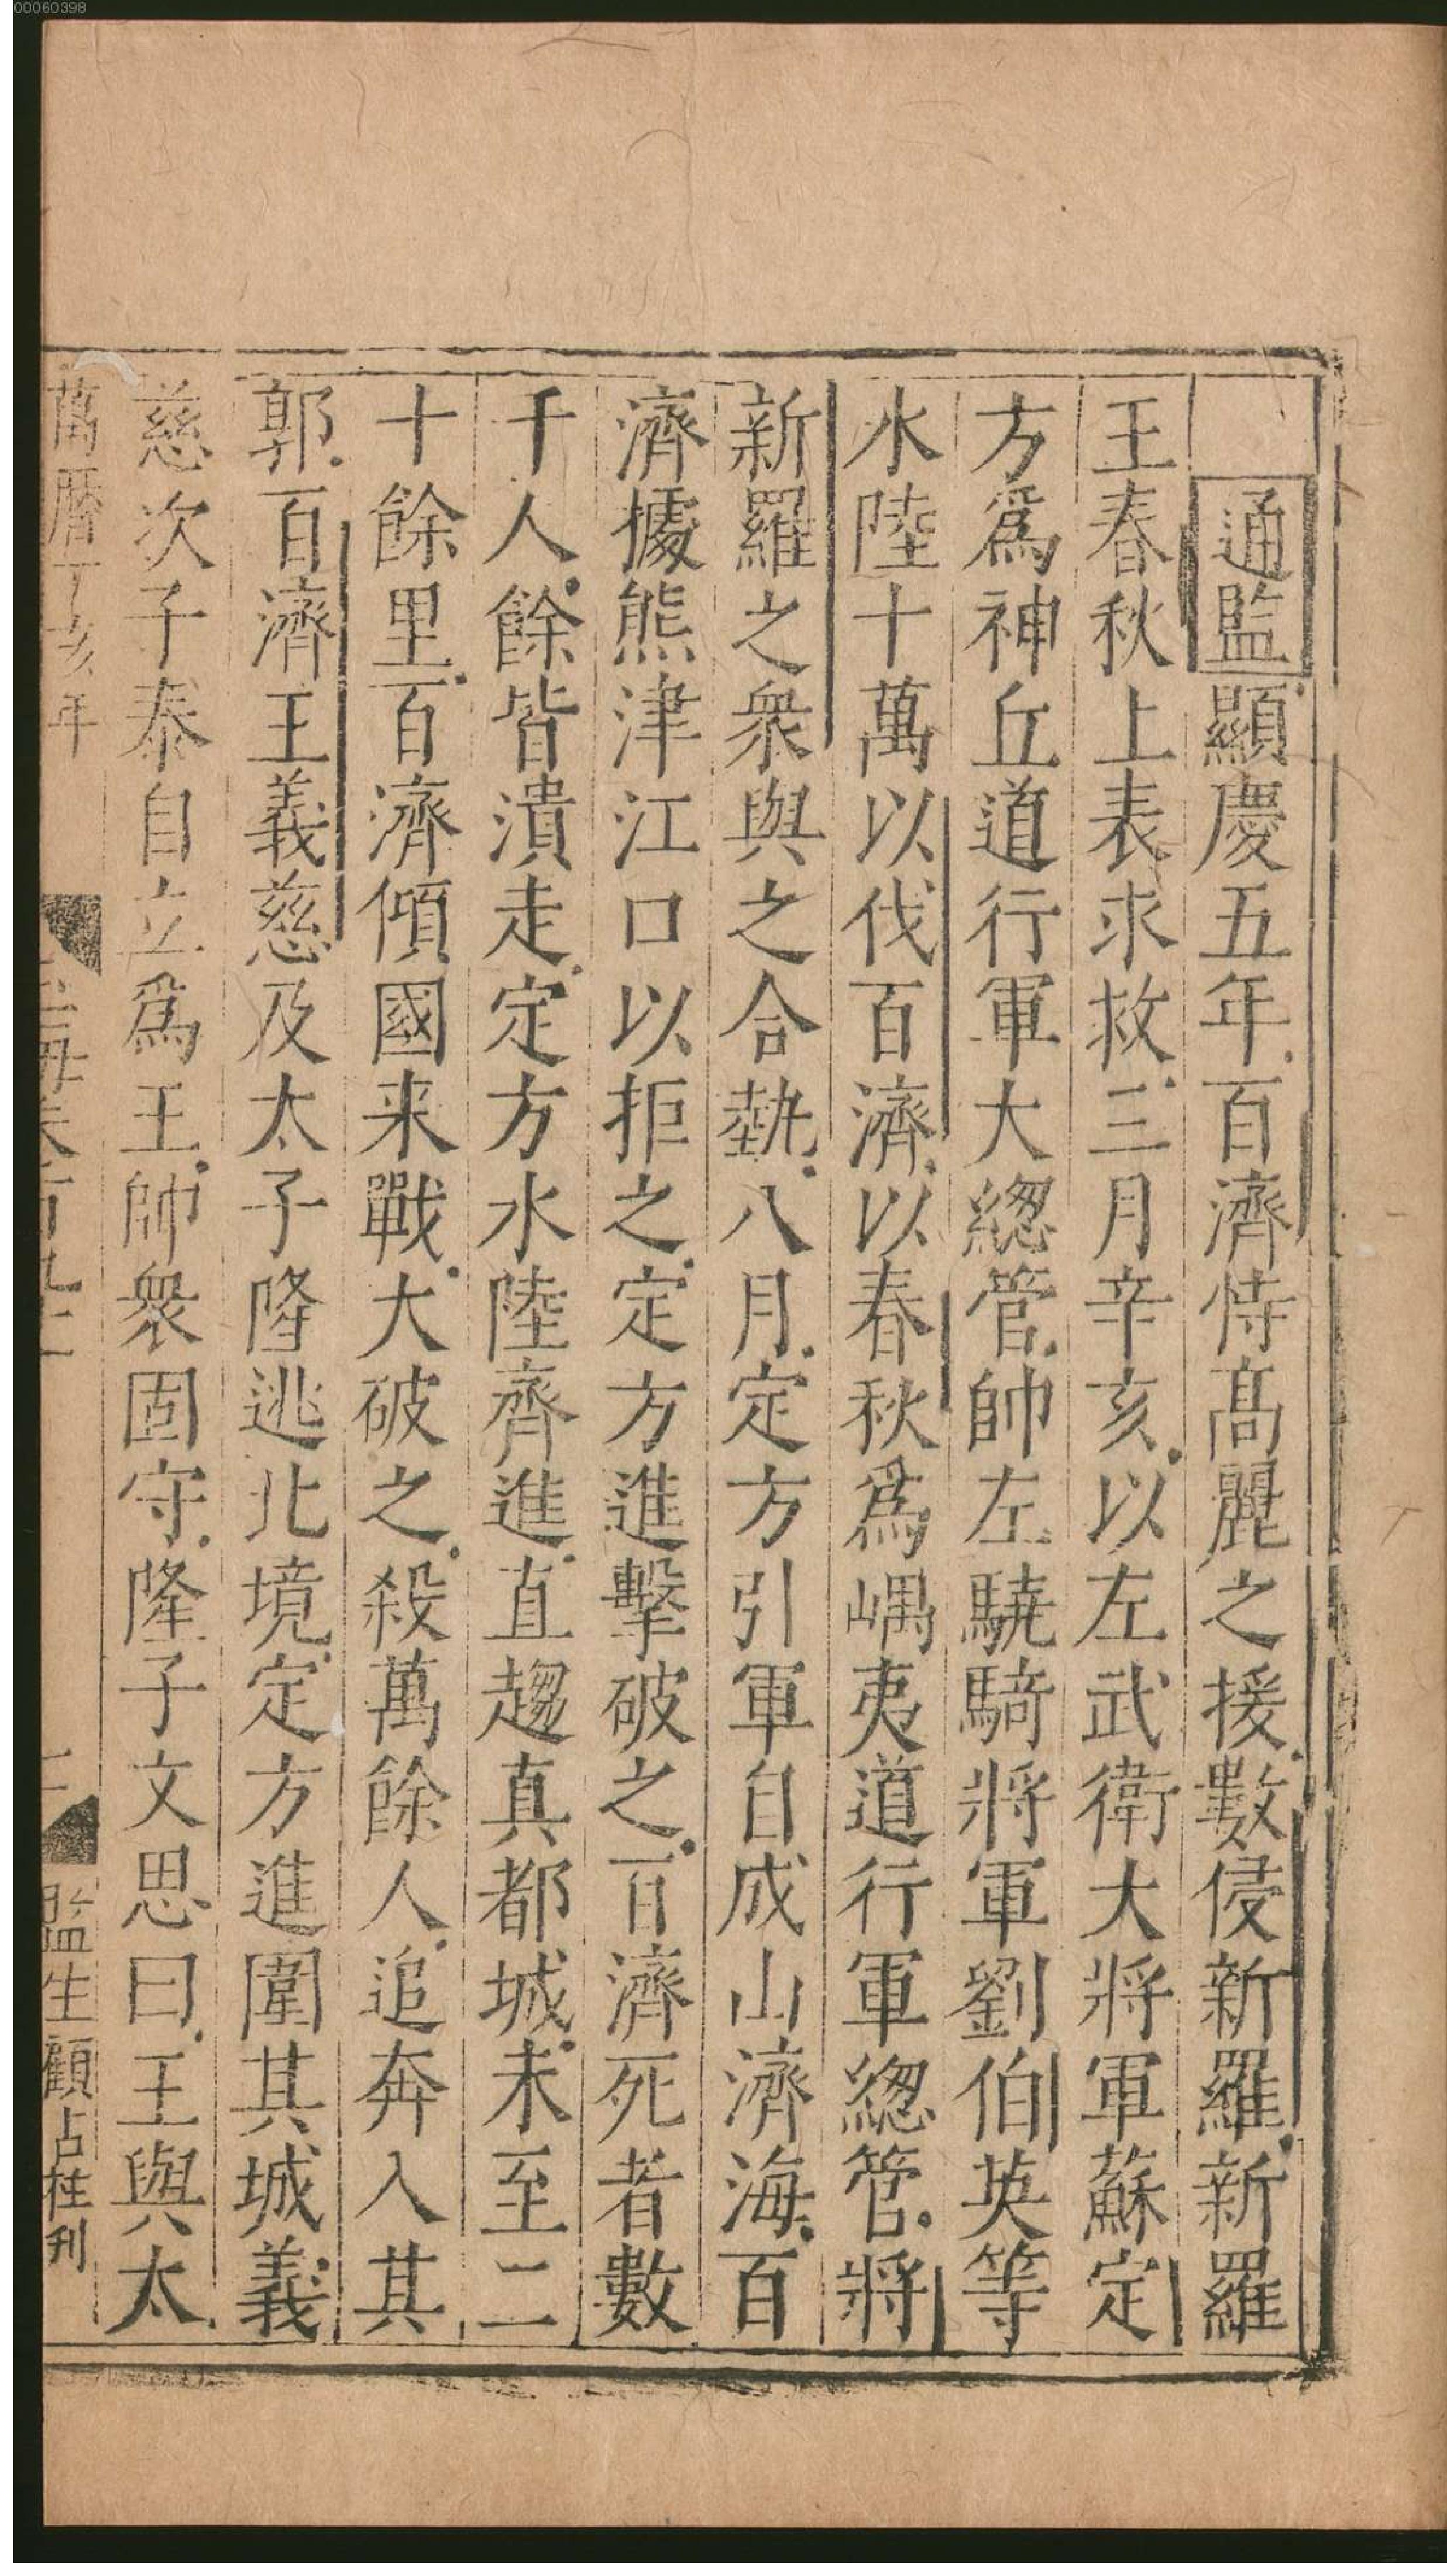 00060398
通監顯慶五年百濟恃髙麗之援數侵新羅新羅
王春秋上表求救三月辛亥以左武衛大將軍蘇定
方爲神丘道行軍大緫管帥左驍騎將軍劉伯英等
水陸十萬以伐百濟以春秋爲嵎夷道行軍緫管將
新羅之衆與之合勢八月定方引軍自成山濟海百
濟據熊津江口以拒之定方進擊破之百濟死者數
千人餘皆潰走定方水陸齊進直趨真都城未至二
十餘里百濟傾國来戰大破之殺萬餘人追奔入其
郭百濟王義慈及太子隆逃北境定方進圍其城義
慈次子泰自立爲王帥衆固守隆子文思曰王與太
萬曆丁亥年
二
監生顧占桂刊